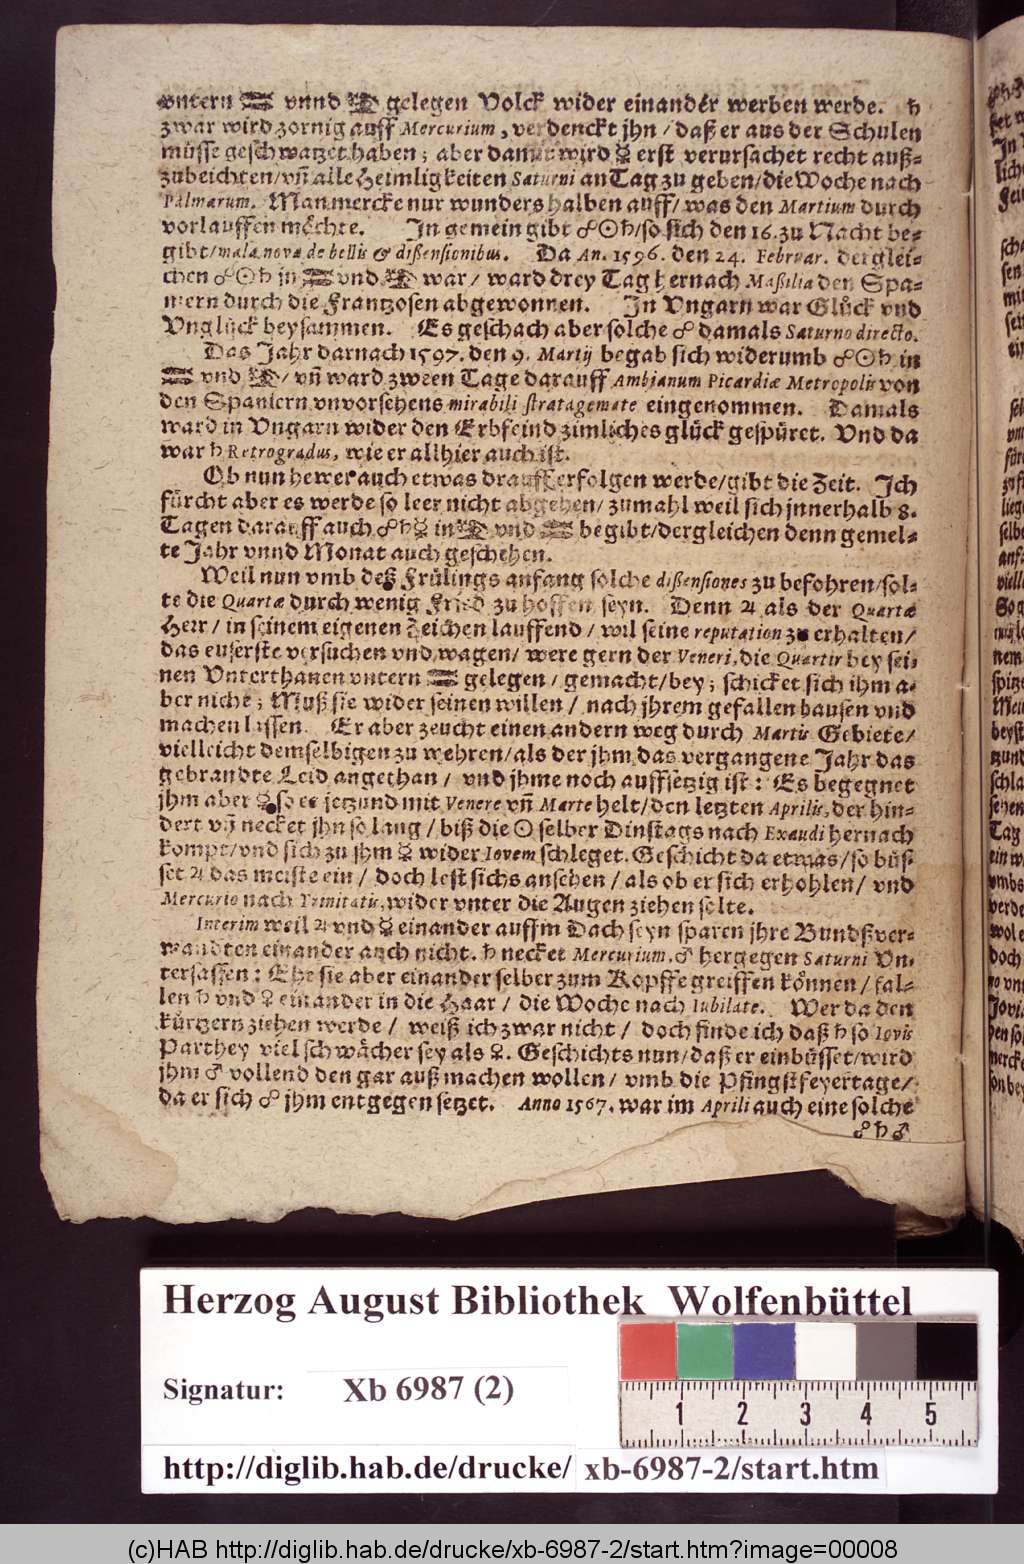 vntern ♓ vnnd ♍ gelegen Volck wider einander werben werde. ♄
zwar wird zornig auff Mercurium, verdenckt jhn / daß er aus der Schulen
müsse geschwatzet haben; aber damit wird ☿ erst verursachet recht auß-
zubeichten/vñ alle Heimligkeiten Saturni an Tag zu geben/die Woche nach
Palmarum. Man mercke nur wunders halben auff/ was den Martium durch
vorlauffen möchte. In gemein gibt ☍☉♄/so sich den 16. zu Nacht be-
gibt/mala nova de bellis & dißensionibus. Da An. 1596. den 24. Februar. derglei-
chen ☍☉♄ in ♓ vnd ♍ war/ ward drey Tag hernach Maßilia den Spa-
niern durch die Frantzosen abgewonnen. In Vngarn war Glück vnd
Vnglück beysammen. Es geschach aber solche ☍ damals Saturno directo.
Das Jahr darnach 1597. den 9. Martij begab sich widerumb ☍☉♄ in
♓ vnd ♍/ vñ ward zween Tage darauff Ambianum Picardiæ Metropolis von
den Spaniern vnvorsehens mirabili stratagemate eingenommen. Damals
ward in Vngarn wider den Erbfeind zimliches glück gespüret. Vnd da
war ♄ Retrogradus, wie er allhier auch ist.
Ob nun hewer auch etwas drauff erfolgen werde/gibt die Zeit. Ich
fürcht aber es werde so leer nicht abgehen/ zumahl weil sich jnnerhalb 8.
Tagen darauff auch ☍♄☿ in ♍ vnd ♓ begibt/dergleichen denn gemel-
te Jahr vnnd Monat auch geschehen.
Weil nun vmb deß Frülings anfang solche dißensiones zu befohren/sol-
te die Quartæ durch wenig Fried zu hoffen seyn. Denn ♃ als der Quartæ
Herr / in seinem eigenen Zeichen lauffend / wil seine reputation zu erhalten/
das euserste versuchen vnd wagen/ were gern der Veneri, die Quartir bey sei-
nen Vnterthanen vntern ♓ gelegen / gemacht/bey; schicket sich ihm a-
ber nicht; Muß sie wider seinen willen / nach jhrem gefallen hausen vnd
machen lassen. Er aber zeucht einen andern weg durch Martis Gebiete/
vielleicht demselbigen zu wehren/als der jhm das vergangene Jahr das
gebrandte Leid angethan / vnd jhme noch auffsetzig ist: Es begegnet
jhm aber ☿ so es jetzund mit Venere vñ Marte helt/den letzten Aprilis, der hin-
dert vñ necket jhn so lang / biß die ☉ selber Dinstags nach Exaudi hernach
kompt/vnd sich zu jhm ☿ wider Iovem schleget. Geschicht da etwas/so büs-
set ♃ das meiste ein / doch lest sichs ansehen / als ob er sich erhohlen/ vnd
Mercurio nach Trinitatis, wider vnter die Augen ziehen solte.
Interim weil ♃ vnd ☿ einander auffm Dach seyn sparen jhre Bundßver-
wandten einander auch nicht. ♄ necket Mercurium, ♂ hergegen Saturni Vn-
tersassen: Ehe sie aber einander selber zum Kopffe greiffen können / fal-
len ♄ vnd ♀ einander in die Haar / die Woche nach Iubilate. Wer da den
kürtzern ziehen werde / weiß ich zwar nicht / doch finde ich daß ♄ so Iovis
Parthey viel schwächer sey als ♀. Geschichts nun/daß er einbüsset/wird
jhm ♂ vollend den gar auß machen wollen / vmb die Pfingstfeyertage/
da er sich ☍ jhm entgegen setzet. Anno 1567. war im Aprili auch eine solche
☍♄♂
Herzog August Bibliothek Wolfenbüttel
Signatur: Xb 6987 (2)
1 2 3 4 5
http://diglib.hab.de/drucke/ xb-6987-2/start.htm
(c)HAB http://diglib.hab.de/drucke/xb-6987-2/start.htm?image=00008